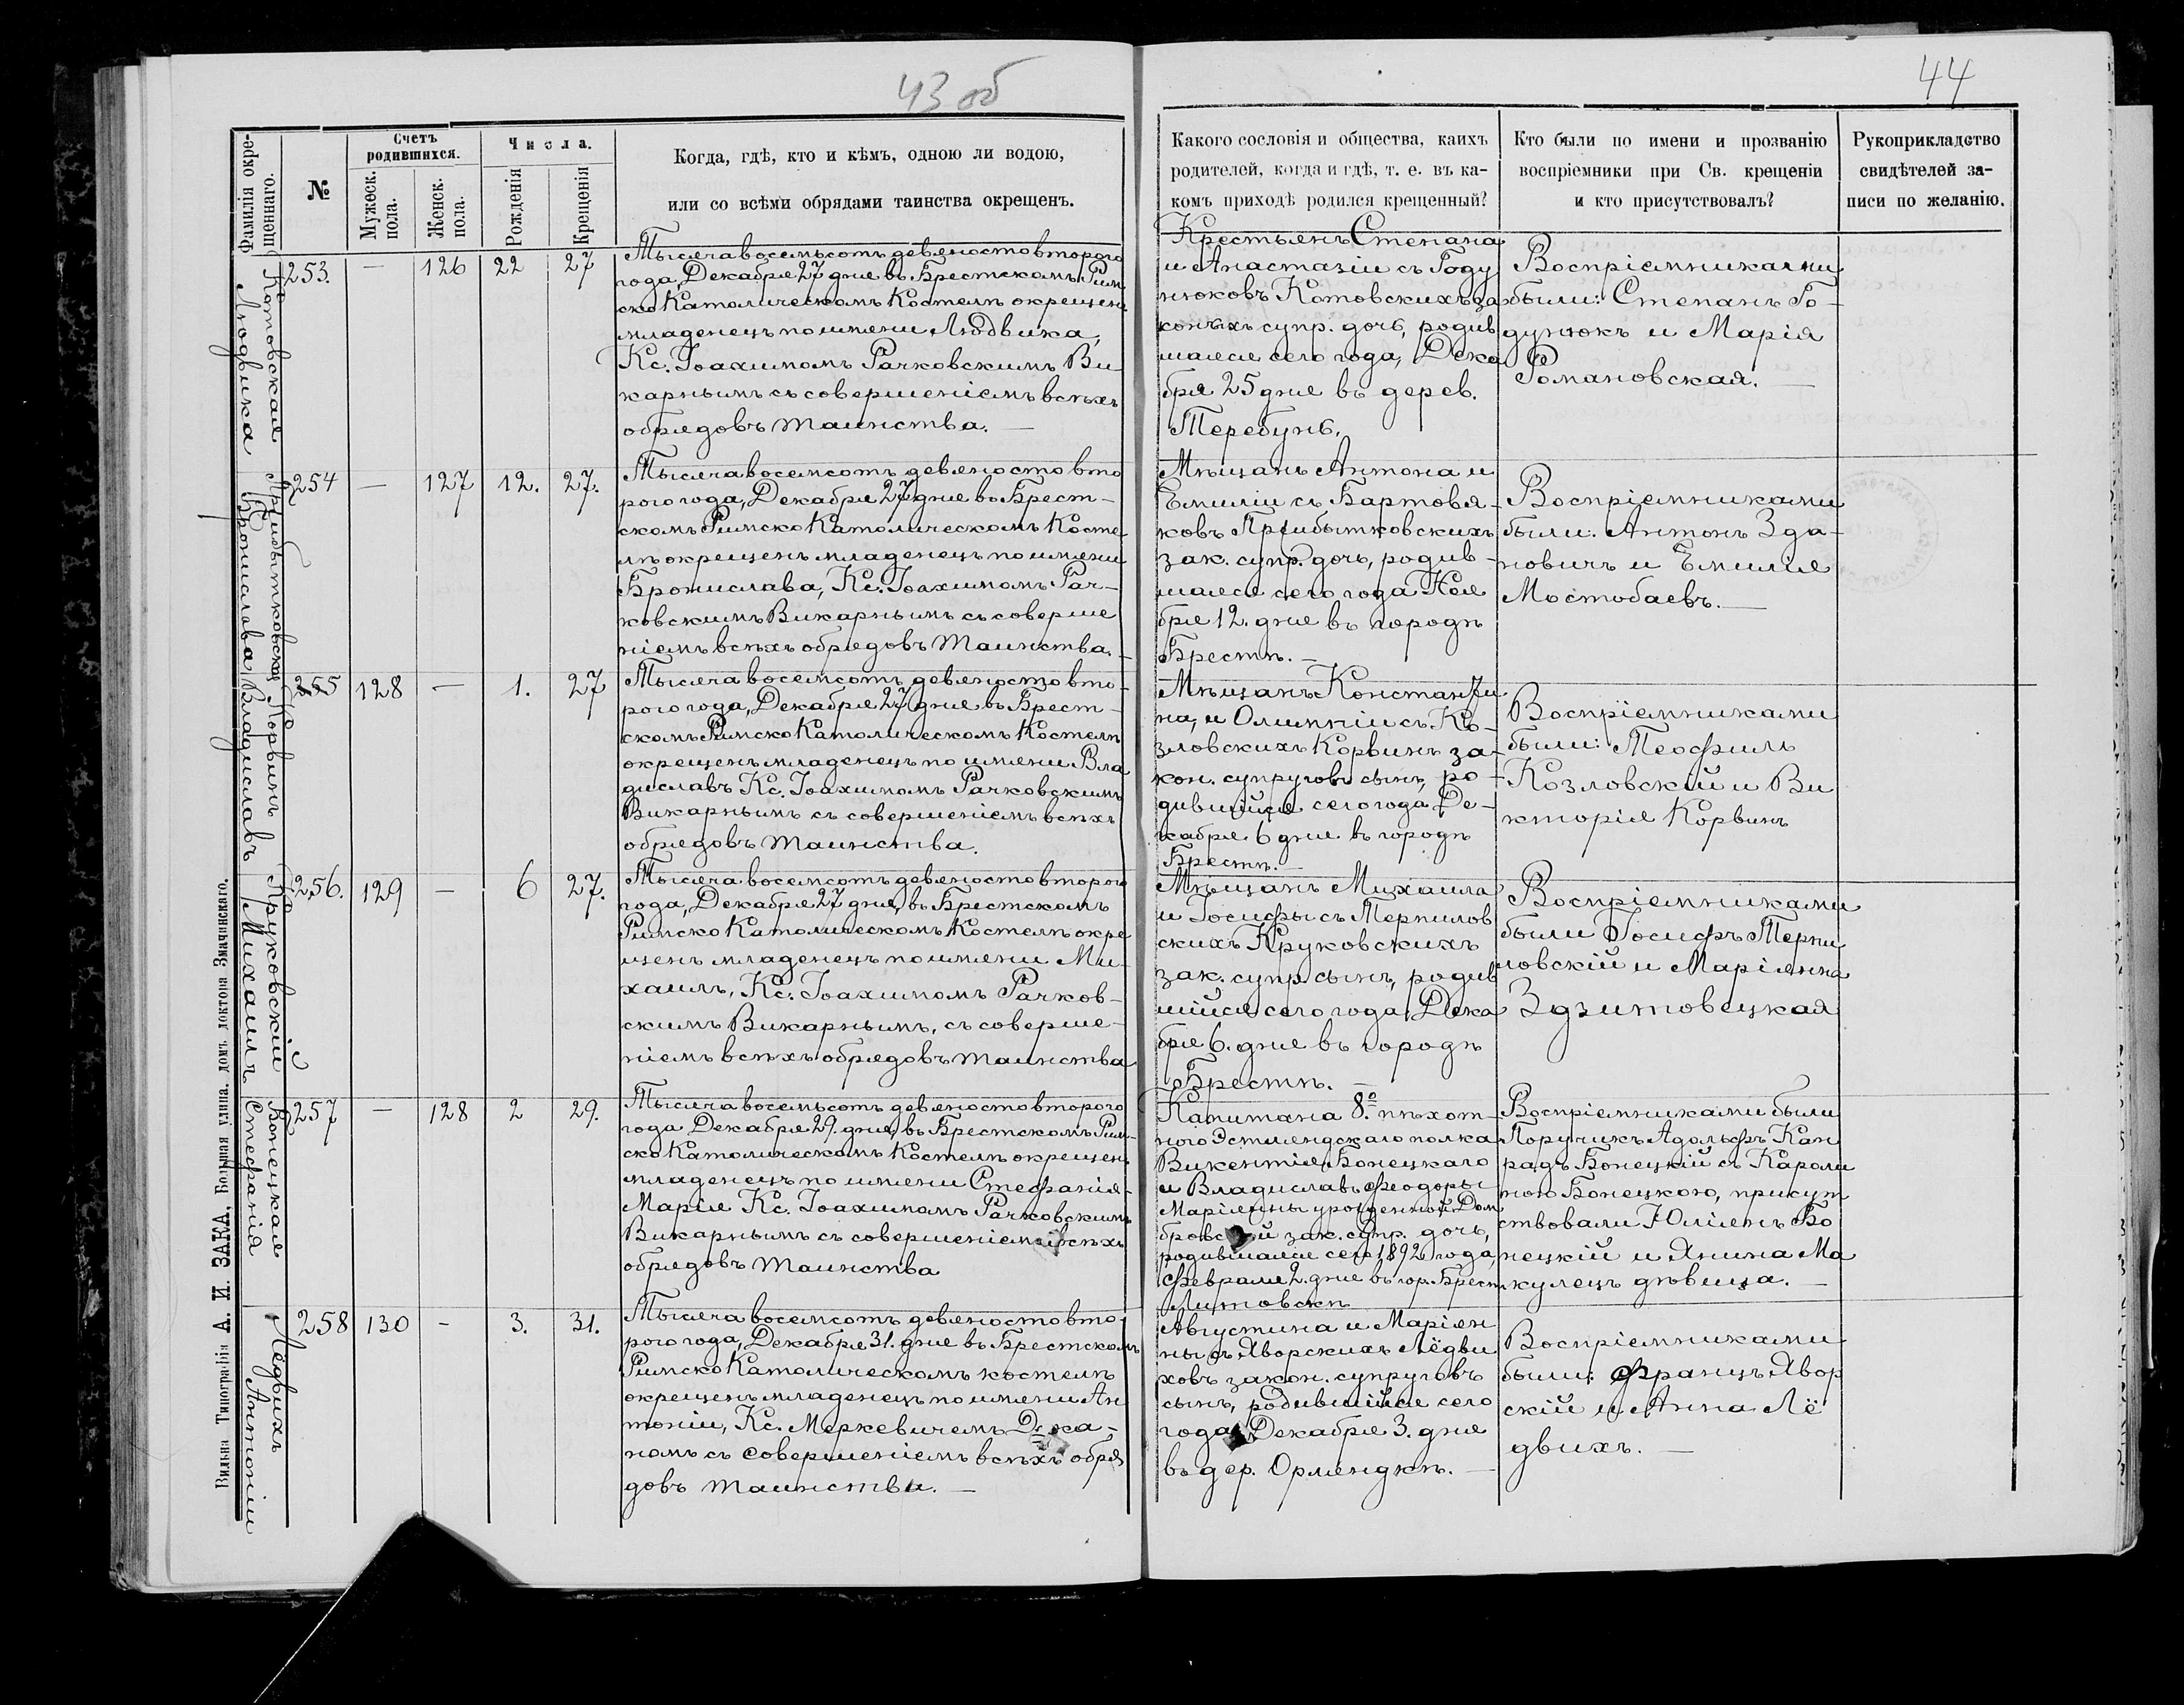 43 об
44
Фамилія окрещеннаго.
№
Счетъ родившихся.
Мужеск. пола.
Женск. пола.
Числа.
Рожденія
Крещенія
Когда, гдѣ, кто и кѣмъ, одною ли водою,
или со всѣми обрядами таинства окрещенъ.
Какого сословія и общества, каихъ
родителей, когда и гдѣ, т. е. въ ка-
комъ приходѣ родился крещенный?
Кто были по имени и прозванію
воспріемники при Св. крещеніи
и кто присутствовалъ?
Рукоприкладство
свидѣтелей за-
писи по желанію.
Котовская
Людвика
253.
—
126
22
27
Тысяча восемьсотъ девяносто второго
года, Декабря 27 дня въ Брестскомъ Рим
ско Католическомъ Костелѣ окрещенъ
младенецъ по имени Людвика,
Кс. Іоахимомъ Рачковскимъ Ви
карнымъ съ совершеніемъ всѣхъ
обрядовъ таинства. —
Крестьянъ Степана
и Анастазіи съ Году
нюковъ Котовскихъ за
конныхъ супр. дочь, родив
шаяся сего года, Дека
бря 25 дня въ дерев.
Теребунь.
Воспріемниками
были: Степанъ Го-
дунюкъ и Марія
Романовская. —
Прибытковская
Бронислава
254
—
127
12.
27.
Тысяча восемсотъ девяносто вто
рого года, Декабря 27 дня въ Брест-
скомъ Римско Католическомъ Косте
лѣ окрещенъ младенецъ по имени
Бронислава, Кс. Іоахимомъ Рач-
ковскимъ Викарнымъ съ соверше
ніемъ всѣхъ обрядовъ таинства. —
Мѣщанъ Антона и
Емиліи съ Бартовя-
ковъ Прибытковскихъ
зак. супр. дочь, родив-
шаяся сего года Ноя
бря 12. дня въ городѣ
Брестѣ. —
Воспріемниками
были: Антонъ Зда-
новичъ и Емилія
Мостобаевъ. —
Корвинъ
Владиславъ
255
128
—
1.
27
Тысяча восемсотъ девяносто вто-
рого года, Декабря 27 дня въ Брест-
скомъ Римско Католическомъ Костелѣ
окрещенъ младенецъ по имени Вла
диславъ Кс. Іоахимомъ Рачковскимъ
Викарнымъ съ совершеніемъ всѣхъ
обрядовъ таинства.
Мѣщанъ Константи
на, и Олимпіи съ Ко-
зловскихъ Корвинъ за-
кон. супруговъ сынъ, ро-
дившійся сего года Де-
кабря 6 дня въ городѣ
Брестѣ. —
Воспріемниками
были: Теофиль
Козловскій и Ви
кторія Корвинъ
Круковскій
Михаилъ
256.
129
—
6
27.
Тысяча восемсотъ девяносто второго
года, Декабря 27 дня, въ Брестскомъ
Римско Католическомъ Костелѣ окре
щенъ младенецъ по имени Ми-
хаилъ, Кс. Іоахимомъ Рачков-
скимъ Викарнымъ, съ соверше-
ніемъ всѣхъ обрядовъ таинства
Мѣщанъ Михаила
и Іосифы съ Терпилов
скихъ Круковскихъ
зак. супр. сынъ, родив
шійся сего года, Дека
бря 6. дня въ городѣ
Брестѣ. —
Воспріемниками
были Іосифъ Терпи
ловскій и Маріянна
Здзитовецкая
Бонецкая
Стефанія
257
—
128
2
29.
Тысяча восемьсотъ девяносто второго
года, Декабря 29. дня, въ Брестскомъ Рим-
ско Католическомъ Костелѣ окрещенъ
младенецъ по имени Стефанія-
Марія Кс. Іоахимомъ Рачковскимъ
Викарнымъ съ совершеніемъ всѣхъ
обрядовъ таинства
Капитана 8.го пѣхот-
ного Эстляндскаго полка
Викентія Бонецкаго
и Владиславъ Феодоры
Маріянны урожденной Дом
бровской зак. супр. дочь,
родившаяся сего 1892 года,
Февраля 2. дня въ гор. Брест
Литовскѣ
Воспріемниками были
Поручикъ Адольфъ Кан
радъ Бонецкій съ Кароли
ною Бонецкою, присут
ствовали Юліянъ Бо
нецкій и Янина Ма
кулецъ дѣвица. —
Лёдвихъ
Антоній
258
130
-
3.
31.
Тысяча восемсотъ девяносто вто-
рого года, Декабря 31. дня въ Брестскомъ
Римско Католическомъ костелѣ
окрещенъ младенецъ по имени Ан
тоній, Кс. Меркевичемъ Дека-
номъ съ совершеніемъ всѣхъ обря
довъ таинства. —
Августина и Маріян
ны съ Яворскихъ Лёдви
ховъ закон. супруговъ
сынъ, родившійся сего
года Декабря 3. дня
въ дер. Орляндкѣ. —
Воспріемниками
были: Францъ Явор
скій и Анна Лё
двихъ. —
Вильна Типографія А. И. ЗАКА, Большая улица, домъ доктора Змачинскаго.